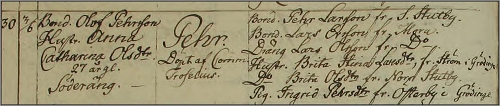 30 3/6 Bond. Olof Pehrson
Hustr. Anna
Catharina Olsdtr
27 årgl.
Söderäng.
Pehr.
Döpt af Comm.
Trofelius.
Bond. Pehr Larson fr. S. Hutby.
Bond. Lars Ersson fr.
Dräng Lars Olson fr. Do
Hustr. Brita Stina Larsdtr, fr. Ström i Grödinge
Do Brita Olsdtr fr. Norr Hutby.
Pig. Ingrid Pehrsdtr fr. Osterby i Grödinge